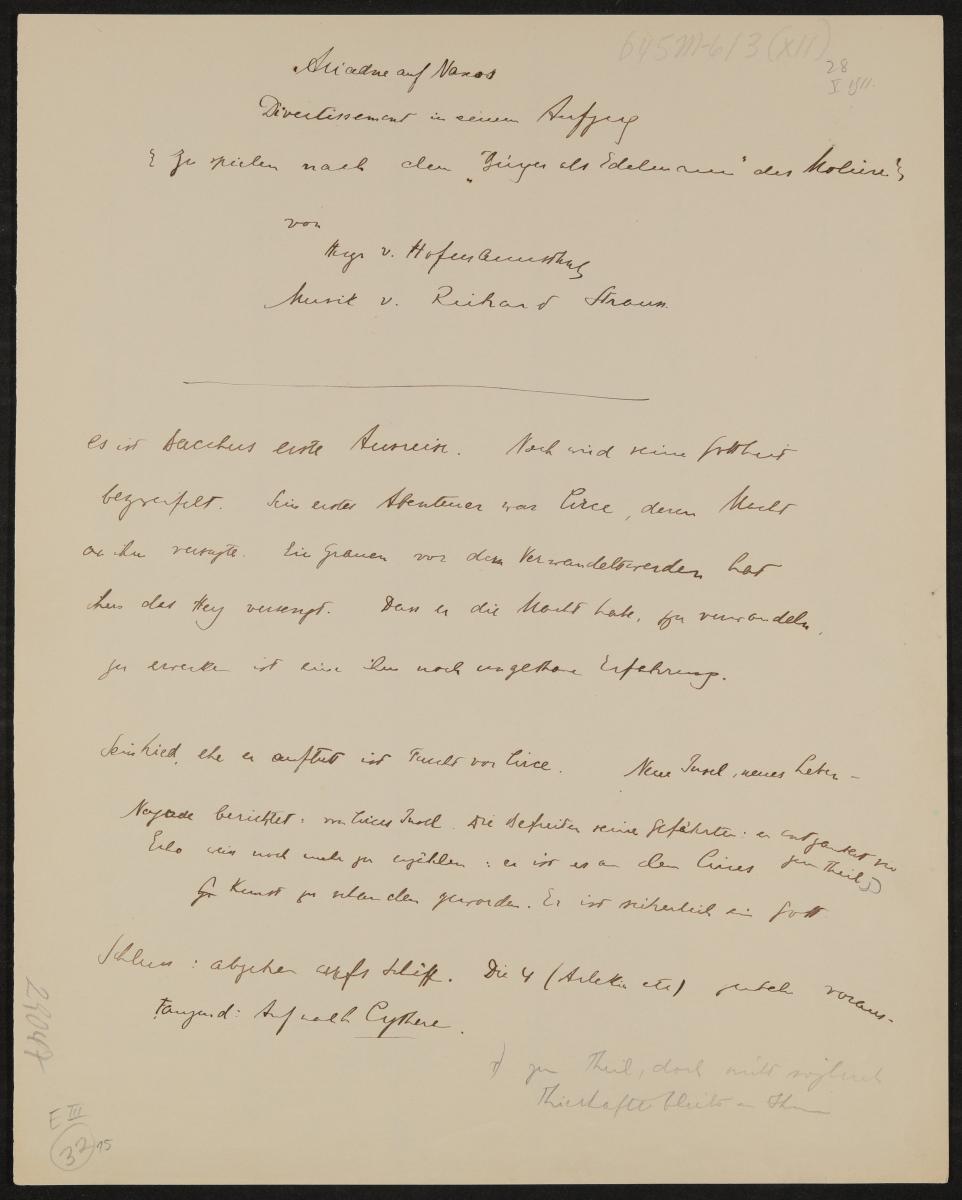 645 M-613 (XII)
28
V 1911.
Ariadne auf Naxos
Divertissement in einem Aufzug
( Zu spielen nach dem „Bürger als Edelmann" des Molière )
von
Hugo v. Hofmannsthal
Musik v. Richard Strauss.
Es ist Bacchus erste Ausreise. Noch wird seine Gottheit
bezweifelt. Sein erstes Abenteuer war Circe, deren Macht
an ihm versagte. Ein Grauen vor dem Verwandeltwerden hat
ihm das Herz versengt. Dass er die Macht habe, zu verwandeln,
zu erwecken ist eine ihm noch ungethane Erfahrung.
Sein Lied, ehe er auftritt ist Furcht vor Circe. Neue Insel, neues Leben –
Najade berichtet: von Circes Insel. Die Befreiten seine Gefährten:
Echo weiss noch mehr zu erzählen: er ist es an dem Circes zum Theil
Kunst zu schanden geworden. Er ist sicherlich ein Gott
Schluss: abgehen aufs Schiff. Die 4 (Arlekin etc) voraus-
tanzend: Auf nach Cythere.
zum Theil, doch
Thierhaftes bleibt an ihnen
29047
E III
32 15